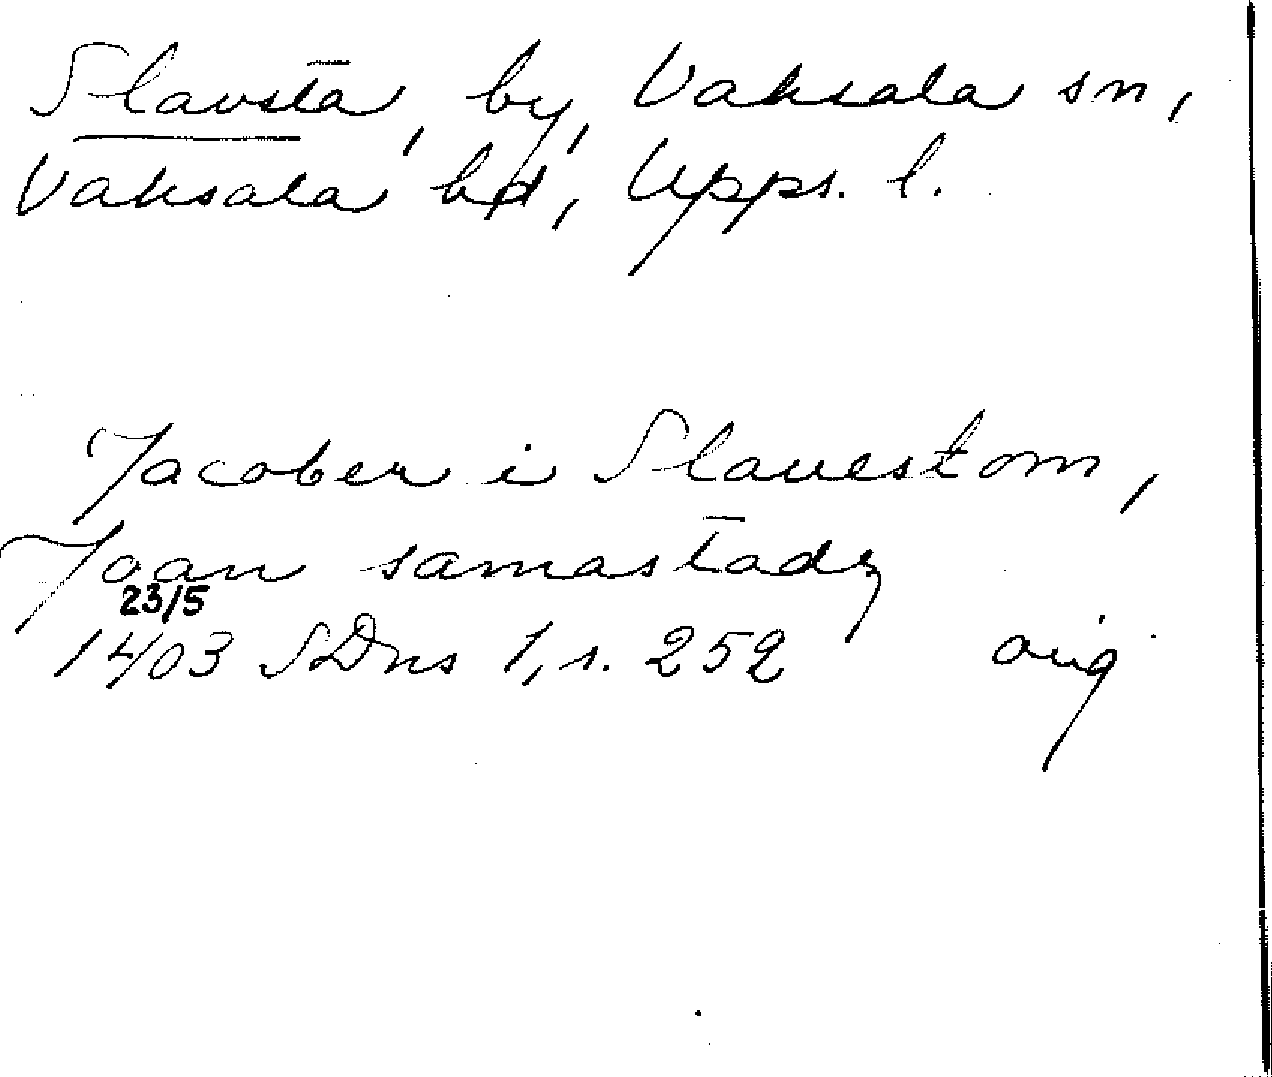 Slavsta, by, Vaksala sn,
Vaksala hd, Upps. l.
Jacober i Slauestom,
Joan samastadz
23/5
1403 SDns 1, s. 252 orig